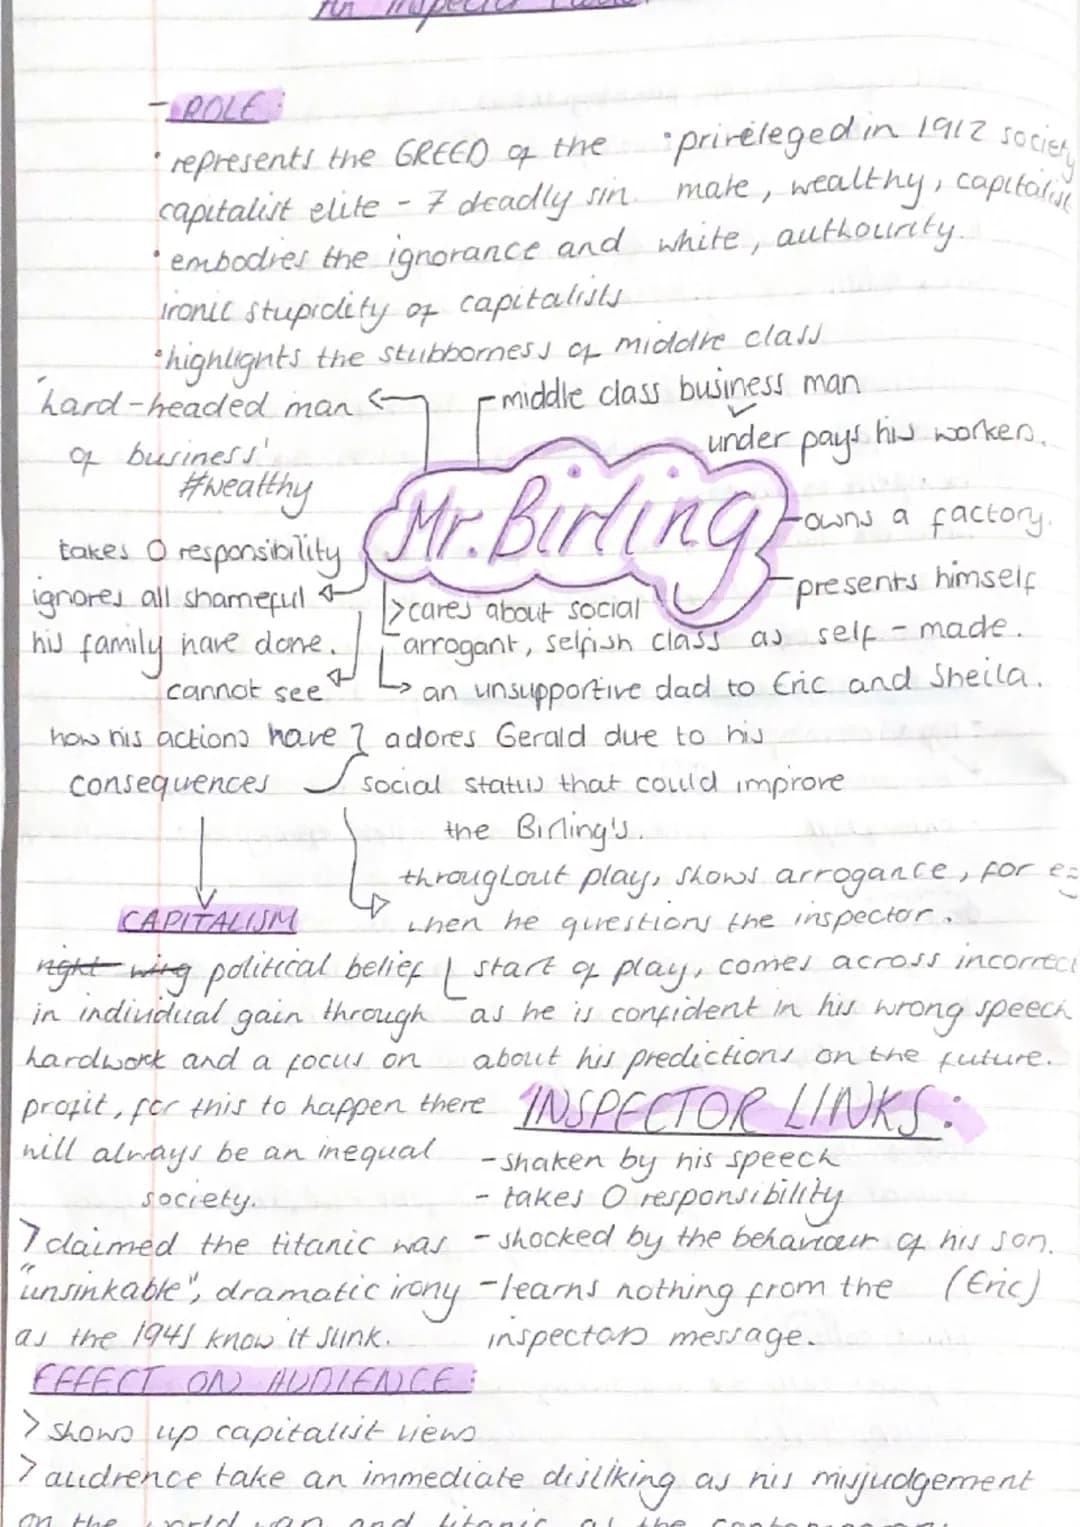 An Inspector Calls
- ROLE:
• represents the GREED of the
capitalist elite - 7 deadly sin.
• embodies the ignorance and
ironic stupidity of capitalists
• highlights the stubborness of middle class
• privileged in 1912 society
male, wealthy, capitalist
white, authourity.
'hard-headed man
of business'
#wealthy
- middle class business man
under pays his workers.
Mr. Birling
- owns a factory.
- presents himself
as self-made.
takes 0 responsibility
ignores all shameful
his family have done.
cannot see
how his actions have
consequences
> cares about social
class
arrogant, selfish
an unsupportive dad to Eric and Sheila.
> adores Gerald due to his
social status that could improve
the Birling's.
throughout play, shows arrogance, for eg
when he questions the inspector.
start of play, comes across incorrect
as he is confident in his wrong speech
about his predictions on the future.
CAPITALISM
right wing political belief
in individual gain through
hardwork and a focus on
profit, for this to happen there
will always be an inequal
society.
> claimed the titanic was
"unsinkable", dramatic irony
as the 194s know it sunk.
INSPECTOR LINKS:
- shaken by his speech
- takes 0 responsibility
- shocked by the behaviour of his son.
(Eric)
- learns nothing from the
inspectors message.
EFFECT ON AUDIENCE:
> shows up capitalist views
> audience take an immediate disliking as his misjudgement
on the world war and titanic as the